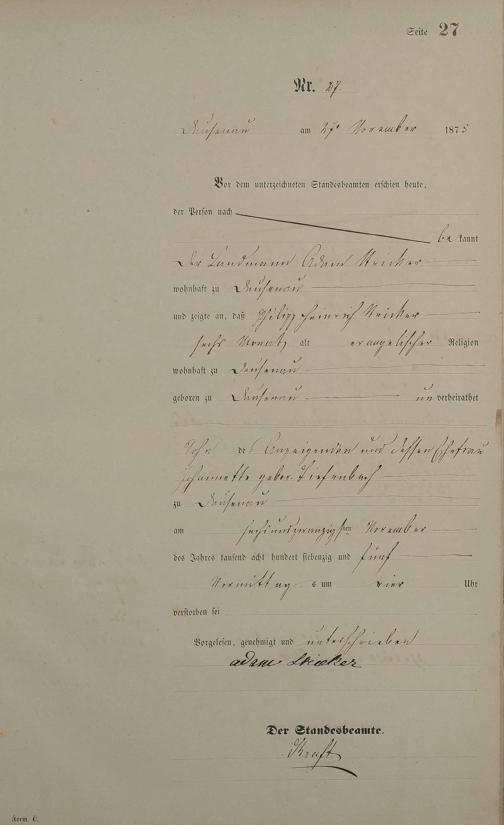 Seite 27
Nr. 27.
Dausenau am 27. November 1875
Vor dem unterzeichneten Standesbeamten erschien heute,
der Person nach
be kannt
der Landmann Adam
wohnhaft zu Dausenau
und zeigte an, daß Philipp Heinrich
sechs Monate alt evangelischer Religion
wohnhaft zu Dausenau
geboren zu Dausenau un verheirathet
Sohn des Anzeigenden und dessen Ehefrau
gebor. Tiefenbach
zu Dausenau
am sechsundzwanzigsten November
des Jahres tausend acht hundert siebenzig und fünf
Vormittags um vier Uhr
verstorben sei
Vorgelesen, genehmigt und unterschrieben
Adam
Der Standesbeamte.
Kraft
Form. C.